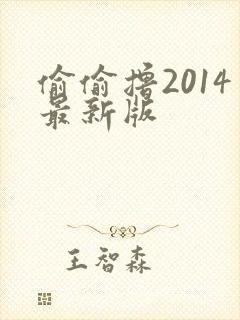 偷偷撸2014
最新版
王智森